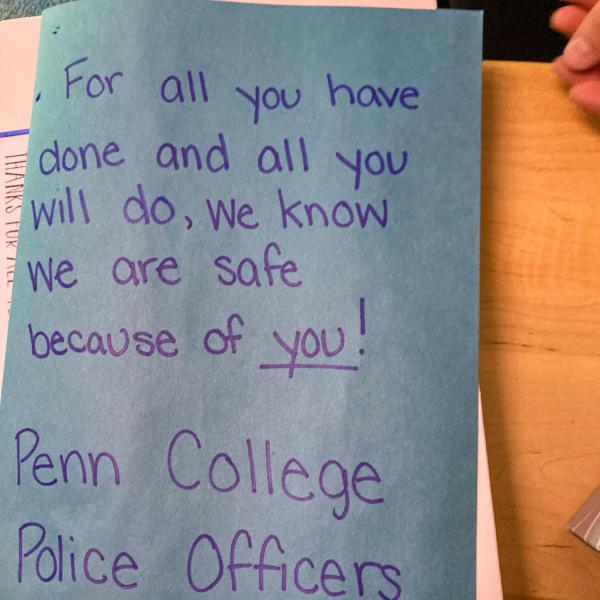 For all you have
done and all you
will do, we know
we are safe
because of you!
Penn College
Police Officers
THANKS FOR ALL